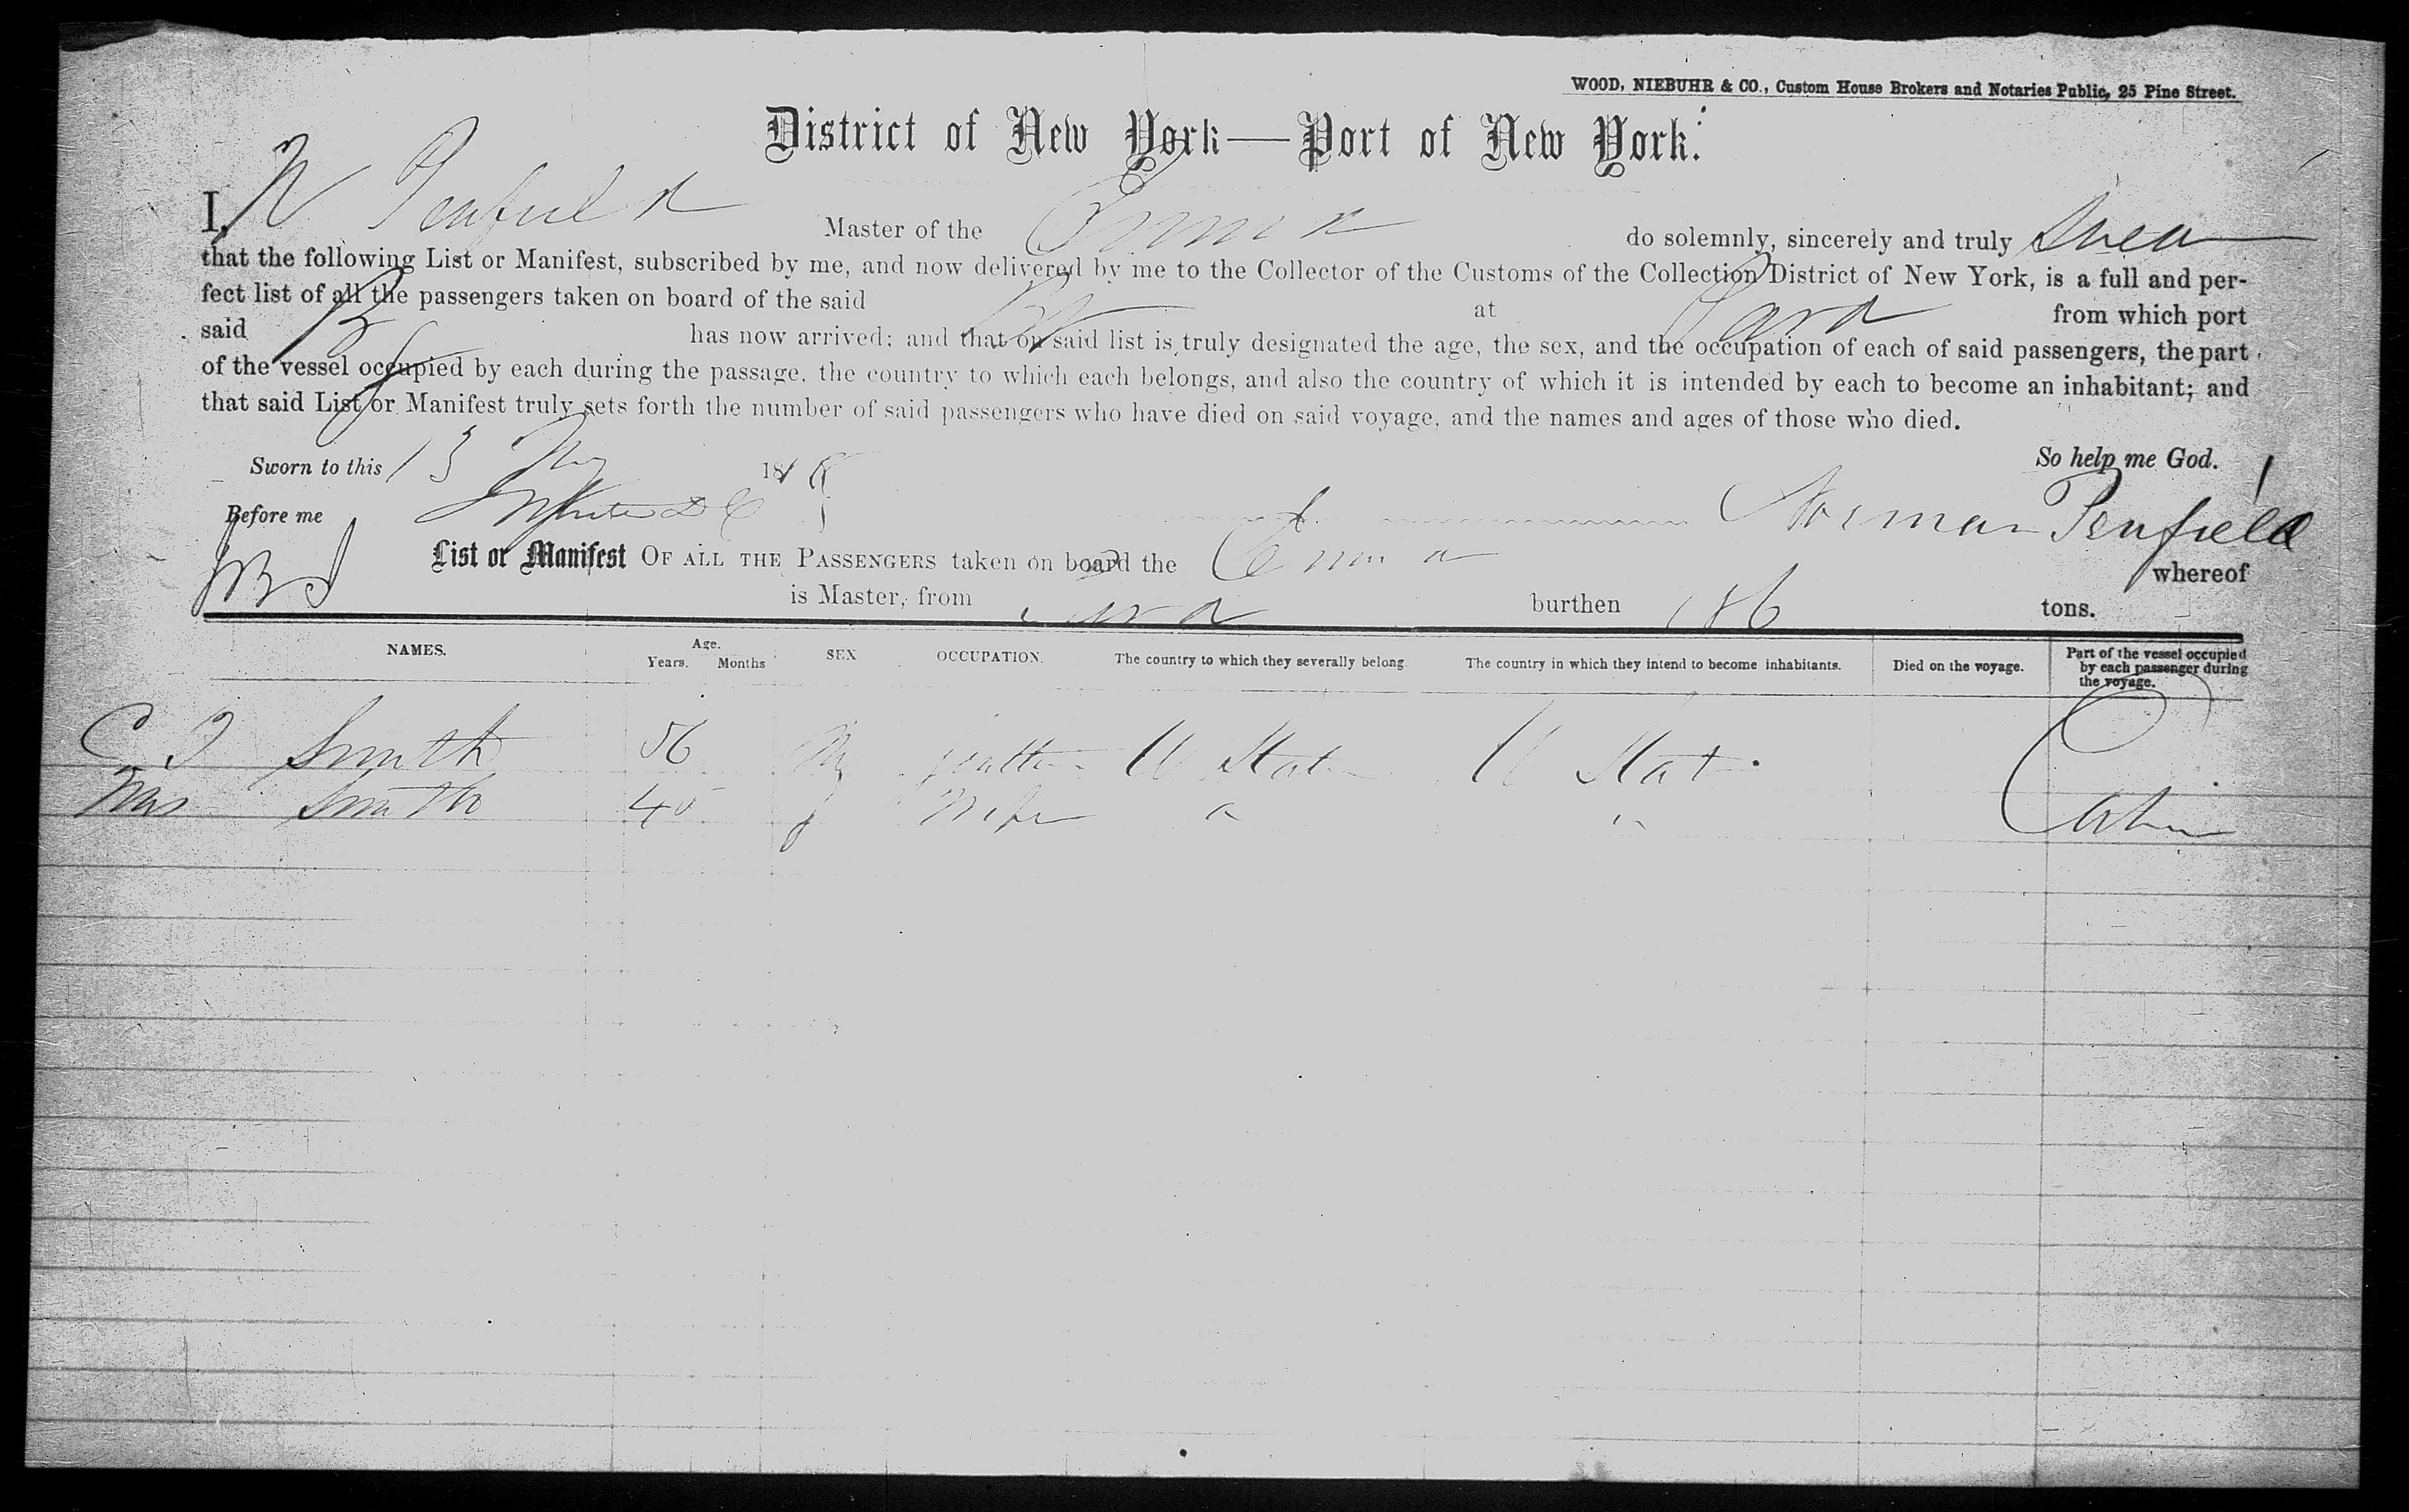 WOOD, NIEBUHR & CO., Custom House Brokers and Notaries Public, 25 Pine Street.
District of New York—Port of New York.
I, N Penfield Master of the Emma do solemnly, sincerely and truly Swear
that the following List or Manifest, subscribed by me, and now delivered by me to the Collector of the Customs of the Collection District of New York, is a full and per-
fect list of all the passengers taken on board of the said at from which port
said has now arrived; and that on said list is truly designated the age, the sex, and the occupation of each of said passengers, the part
of the vessel occupied by each during the passage, the country to which each belongs, and also the country of which it is intended by each to become an inhabitant; and
that said List or Manifest truly sets forth the number of said passengers who have died on said voyage, and the names and ages of those who died.
So help me God.
Sworn to this 13 18
Before me Norman Penfield
List or Manifest OF ALL THE PASSENGERS taken on board the Emma whereof
is Master, from burthen 186 tons.
NAMES. Age. Years. Months SEX OCCUPATION. The country to which they severally belong. The country in which they intend to become inhabitants. Died on the voyage. Part of the vessel occupied by each passenger during the voyage.
C Smith 56 M U States U States
Mrs Smith 45 f Wife " " Cabin